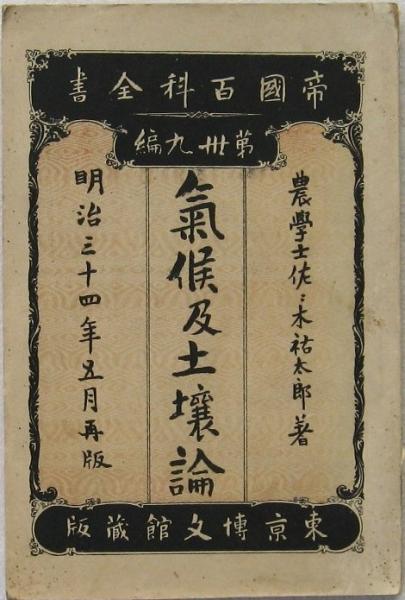 帝國百科全書
第卅九編
農學士佐〻木祐太郎著
氣候及土壤論
明治三十四年五月再版
東京博文館蔵版